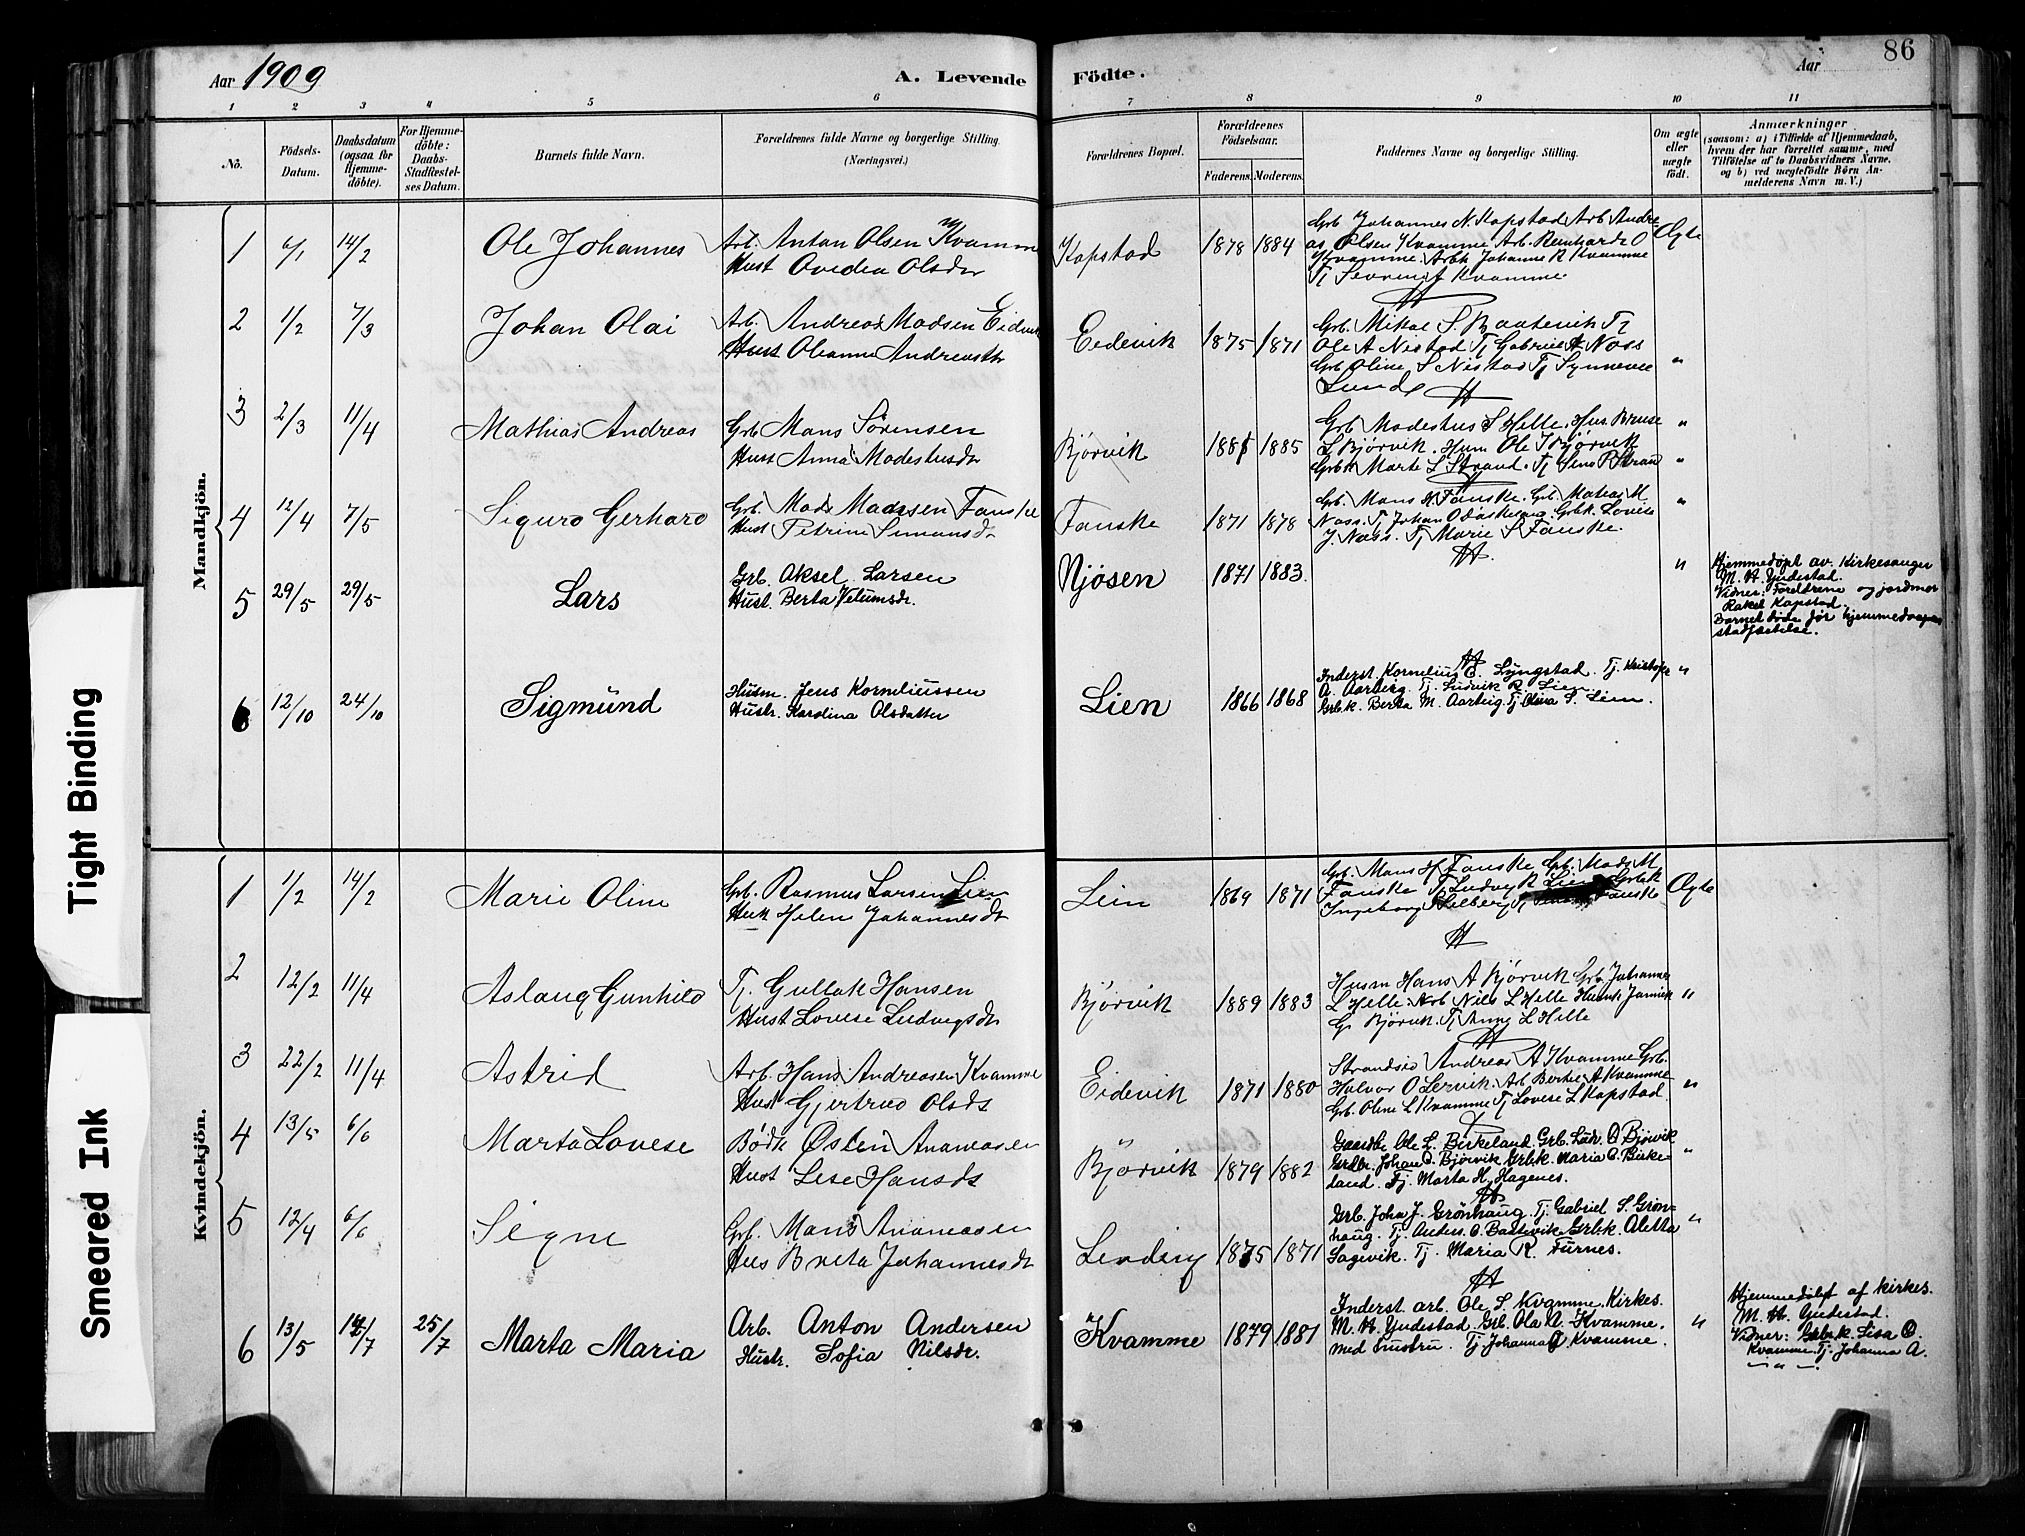 Aar 1909
A. Levende
Födte.
Aar
86
1 2 3 4 5 6 7 8 9 10 11
No.
Födsels-
Datum.
Daabsdatum
(ogsaa for
Hjemme-
döbte).
For Hjemme-
döbte:
Daabs-
Stadfæstel-
ses Datum.
Barnets fulde Navn.
Forældrenes fulde Navne og borgerlige Stilling.
(Næringsvei.)
Forældrenes Bopæl.
Forældrenes
Födselsaar.
Faderens. Moderens.
Faddernes Navne og borgerlige Stilling.
Om ægte
eller
uægte
födt.
Anmærkninger
(saasom: a) i Tilfælde af Hjemmedaab,
hvem der har forrettet samme, med
Tilföielse af to Daabsvidners Navne.
og b) ved uægtefödte Börn An-
melderens Navn m. V.)
Mandkjön.
1 6/1 14/2 Ole Johannes
Arb. Anton Olsen Kvamme
Hust Ovedia Olsdr
Kopstad 1878 1884
Grb Johannes N. Kopstad Arb Andre
as Olsen Kvamme Arb. Reinhardt O
Kvamme. Arbk Johanne R Kvamme
Tj Severine J Kvamme
Ægte
2 1/2 7/3 Johan Olai
Arb. Andreas Madsen Eidevik
Hust Oleanna Andreasdtr
Eidevik 1875 1871
Grb. Mikal S. Baatevik Tj
Ole A Nistad Tj Gabriel A Nass
Grb Oline S Nistad Tj Synneve
Lunde
"
3 2/3 11/4 Mathias Andreas
Grb Mons Sørensen
Hust Anna Modestusdr
Bjørvik 1881 1885
Grb Modestus S Helle. Hus. Bruse
L Bjørvik. Husm Ole J Bjørvik
Grbk Marte L Strand. Tj Sina P Stran
" "
4 12/4 7/5 Sigurd Gerhard
Grb. Mads Madsen Fanske
Hust Petrine Simonsdr
Fanske 1871 1878
Grb Mons H Fanske. Grb. Matias M
Nass. Tj Johan O Aaskelang Grbk Lovise
J. Nass. Tj Marie S Fanske.
"
5 29/5 29/5 Lars
Grb. Aksel Larsen
Hust. Berta Vetumsdr.
Njøsen 1871 1883
"
Hjemmedøpt av Kirkesanger
M. H. Yndestad.
Vidner: Foreldrene og jordmor
Rakel Kapstad.
Barnet døde før hjemmedaapen
stadfæstelse.
6 12/10 24/10 Sigmund
Husm. Jens Korneliussen
Hustr. Karolina Olsdatter
Lien 1866 1868
Inderst. Kornelius E. Lyngstad. Tj. Kristofer
A. Aarberg. Tj. Ludvik R. Lien
Grbk. Berta M. Aarbeig. Tj Olina S. Lien.
"
Kvindekjön.
1 1/2 14/2 Marie Oline
Grb. Rasmus Larsen Lien
Hust Helene Johannesdt
Lein 1869 1871
Grb. Mons H Fanske Grb Mads M
Fanske Tj Ludvig R Lien Grbk
Ingeborg S Helberg Tj Fanske
Ægte
2 12/2 11/4 Aslaug Gunhild
Tj. Gullak Hansen
Hust Lovise Ludvigsdt
Bjørvik 1889 1883
Husm Hans A Bjørvik Grb. Johannes
L Helle. Arb Nils L Helle Husmk Jannik
G Bjørvik. Tj Anne L Helle
"
3 22/2 11/4 Astrid
Arb. Hans Andreasen Kvamme
Hust Gjertrud Olsdr
Eidevik 1871 1880
Strandsid Andreas A Kvamme Grb.
Halvor O Lervik. Arb Bertie A Kvamme
Grb. Oline L Kvamme Tj Lovise L Kopstad.
"
4 13/5 6/6 Marta Lovise
Bødk Østen Andreasen
Hust Lise Hansdr
Bjørvik 1879 1882
Gaardbr Ole L. Birkeland. Grb. Ludv. O Bjørvik
Grdbr. Johan O. Bjørvik Grbk. Maria O. Birke-
land. Tj. Marta H. Hagenes.
"
5 12/4 6/6 Signe
Grb. Mons Andreasen
Hus Brita Johannesdt
Lending 1875 1871
Grb. Joha J. Grønhaug. Tj. Gabriel S. Grøn-
haug. Tj. Anders O. Baatevik Grbk. Aletta
Sagevik. Tj. Maria R. Furnes.
"
6 13/5 14/7 25/7 Marta Maria
Arb. Anton Andersen
Hustr. Sofia Nilsdr.
Kvamme 1879 1881
Inderst. arb. Ole S. Kvamme. Kirkes.
M. H. Yndestad Grb. Ola A. Kvamme.
med hustru. Tj. Johanna A Kvamme.
"
Hjemmedøbt af kirkes.
M. H. Yndestad.
Vidner: Grbk. Lisa O.
Kvamme. Tj. Johanna A.
— " —
Tight Binding
Smeared Ink